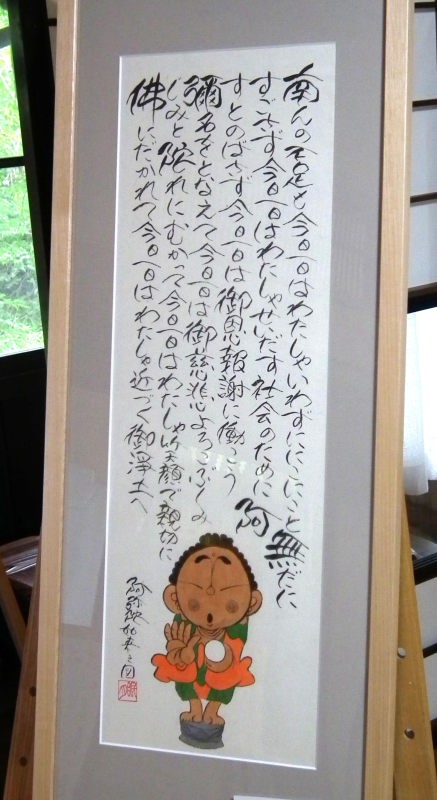 南んの不足も今日一日はわたしゃいわずににこにこと無だに
すごさず今日一日はわたしゃせいだす社会のために阿
すとのばさず今日一日は御恩報謝に働こう
彌名をとなえて今日一日は御慈悲よろこぶしみ
じみと陀れにむかって今日一日はわたしゃ笑顔で親切に
佛にいだかれて今日一日はわたしゃ近づく御淨土へ
阿弥陀如来之図